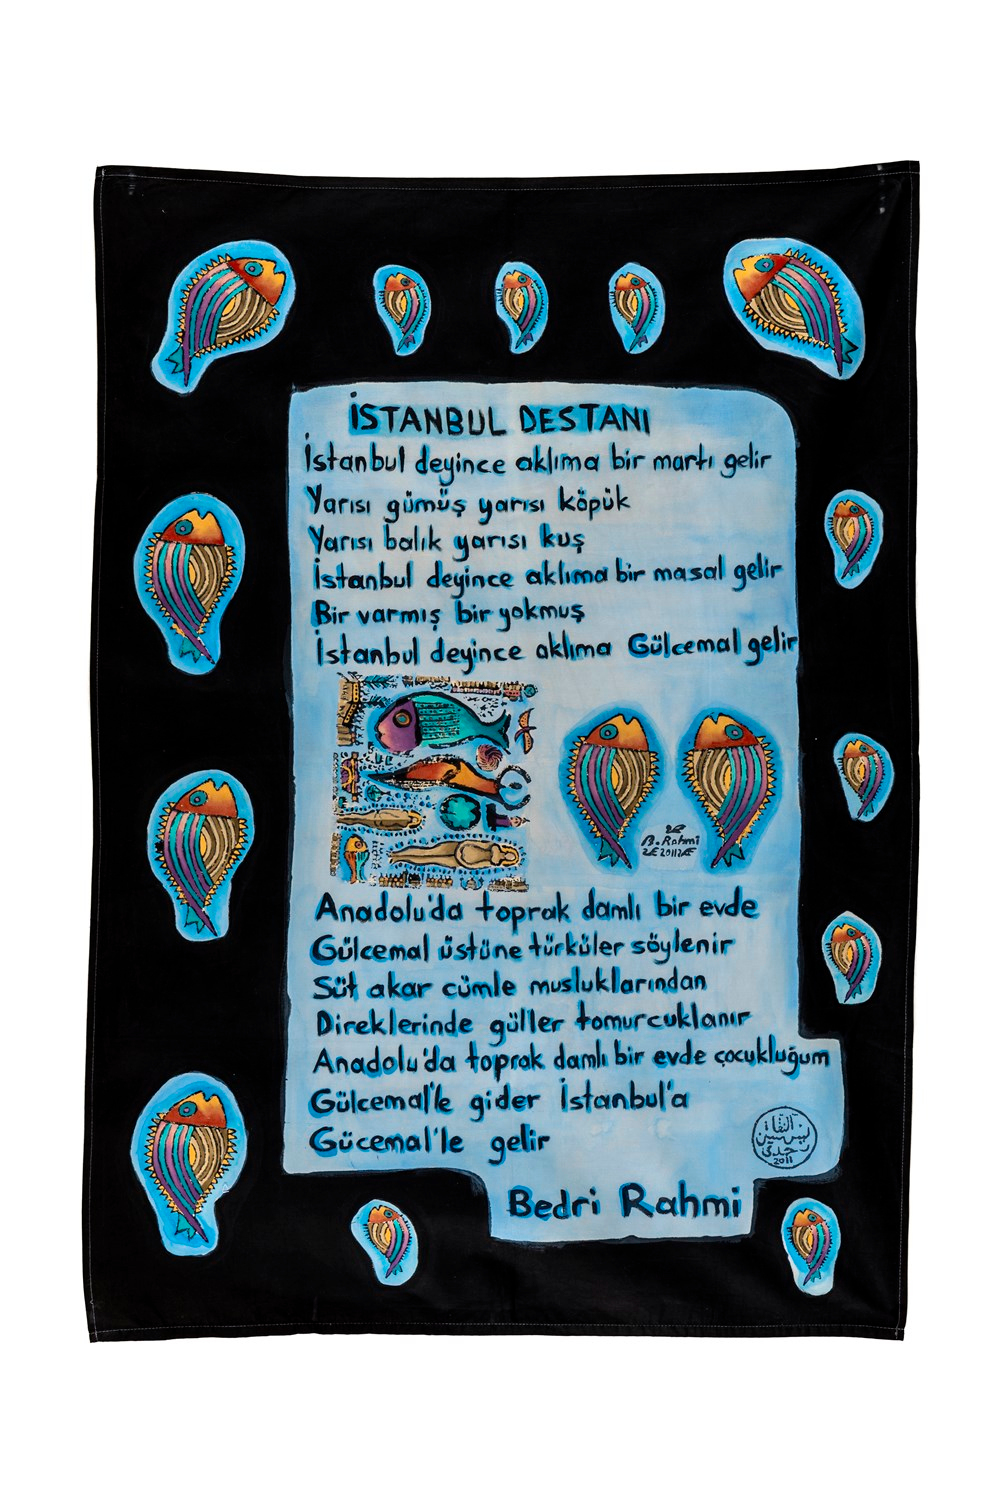 İSTANBUL DESTANI
İstanbul deyince aklıma bir martı gelir
Yarısı gümüş yarısı köpük
Yarısı balık yarısı kuş
İstanbul deyince aklıma bir masal gelir
Bir varmış bir yokmuş
İstanbul deyince aklıma Gülcemal gelir
B. Rahmi
2011
Anadolu'da toprak damlı bir evde
Gülcemal üstüne türküler söylenir
Süt akar cümle musluklarından
Direklerinde güller tomurcuklanır
Anadolu'da toprak damlı bir evde çocukluğum
Gülcemal'le gider İstanbul'a
Gücemal'le gelir
2011
Bedri Rahmi